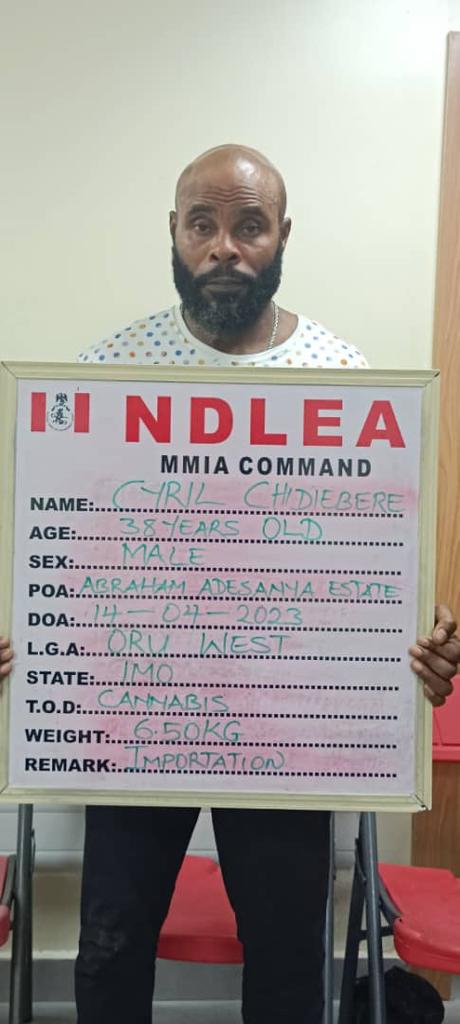 NDLEA
MMIA COMMAND
NAME: CYRIL CHIDIEBERE
AGE: 38 YEARS OLD
SEX: MALE
POA: ABRAHAM ADESANYA ESTATE
DOA: 14-04-2023
L.G.A: ORU WEST
STATE: IMO
T.O.D: CANNABIS
WEIGHT: 6.50KG
REMARK: IMPORTATION